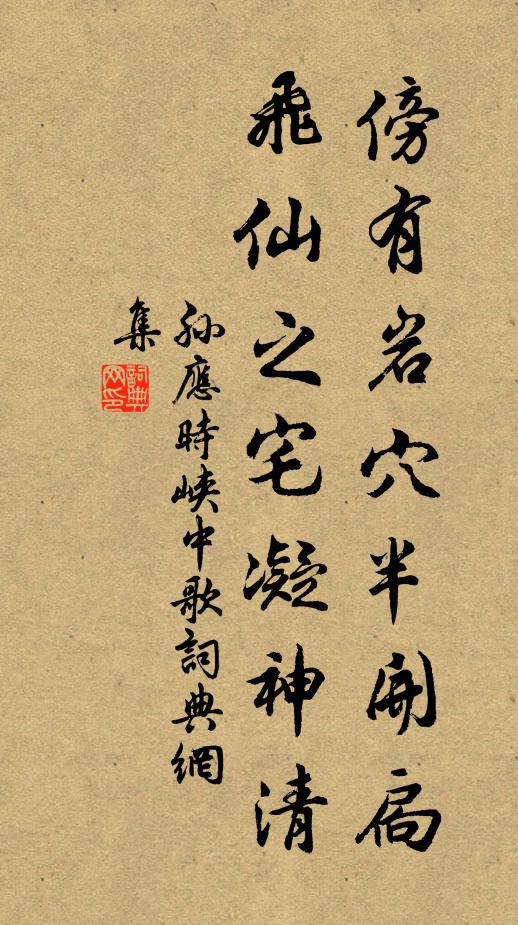 傍有岩穴半開扃
飛仙之宅凝神清
孫應時峽中歌詞典網
集
詞典
网印